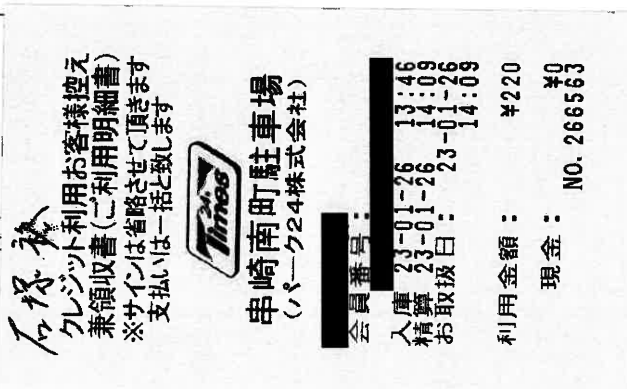 クレジット利用お客様控え
兼領収書(ご利用明細書)
※サインは省略させて頂きます
支払いは一括と致します
24h
Times
串崎南町駐車場
(パーク24株式会社)
会員番号:
入庫 23-01-26 13:46
精算 23-01-26 14:09
お取扱日: 23-01-26
14:09
利用金額: ¥220
現金: ¥0
NO. 266563